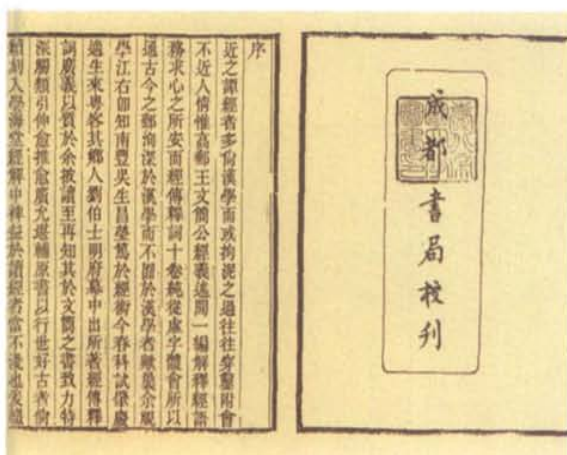 成都書局校刊
序
近之譚經者多尙漢學而或拘泥之過往往穿鑿附會
不近人情惟高郵王文簡公經義述聞一編解釋經語
務求心之所安而經傳釋詞十卷純從虛字體會所以
通古今之郵洵深於漢學而不囿於漢學者歟曩余視
學江右卽知南豐吳生昌瑩篤於經術今春科試肇慶
適生來粵客其鄕人劉伯士明府幕中出所著經傳釋
詞廣義以質於余披讀至再知其於文簡之書致力特
深觸類引伸愈推愈廣尤堪輔原書以行世好古者倘
續刻入學海堂經解中裨益於讀經者當不淺也爰